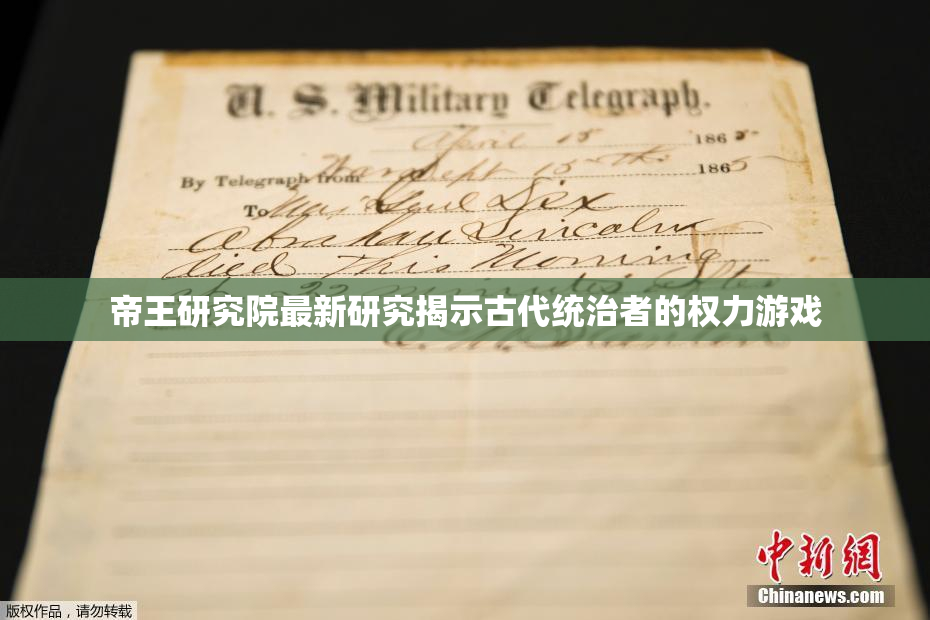 U. S. Military Telegraph.
April 15 1865
By Telegraph from War Dept 15th 1865
To Maj Genl Dix
Abraham Lincoln
died This Morning
at 22 minutes after
帝王研究院最新研究揭示古代统治者的权力游戏
E. M. Stanton
中新網
Chinanews.com
版权作品，请勿转载